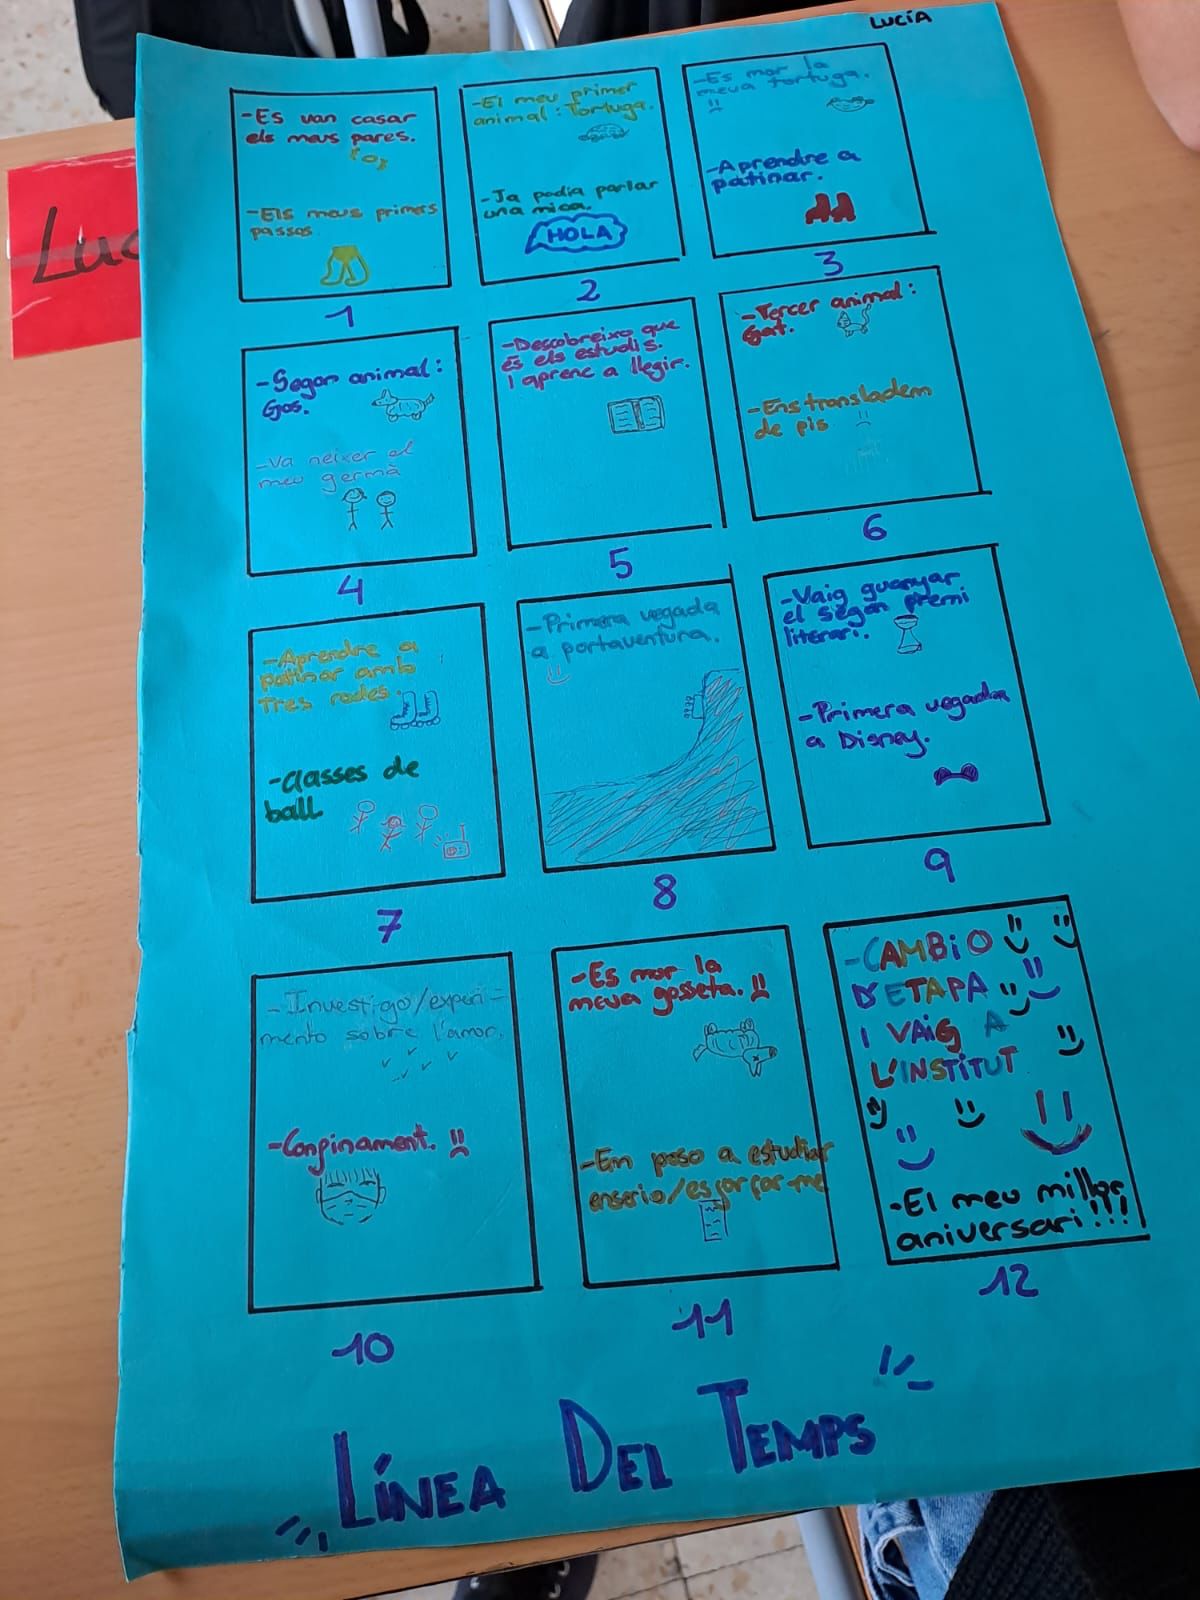 LUCÍA
Luc
-Es van casar
els meus pares.
-Els meus primers
passos
1
-El meu primer
animal: Tortuga.
-Ja podia parlar
una mica.
HOLA
2
-Es mor la
meva tortuga.
-Aprendre a
patinar.
3
-Segon animal:
Gos.
-Va neixer el
meu germà
4
-Descobreixo que
és els estudis.
I aprenc a llegir.
5
-Tercer animal:
Gat.
-Ens transladem
de pis
6
-Aprendre a
patinar amb
tres rodes.
-Classes de
ball
7
-Primera vegada
a portaventura.
8
-Vaig guanyar
el segon premi
literari.
-Primera vegada
a Disney.
9
-Investigo/experi-
mento sobre l'amor.
-Confinament.
10
-Es mor la
meva gosseta.
-Em poso a estudiar
enserio/esforçar-me
11
-CAMBiO
D'ETAPA
I VAiG A
L'INSTiTUT
-El meu millor
aniversari!!!
12
LÍNEA DEL TEMPS